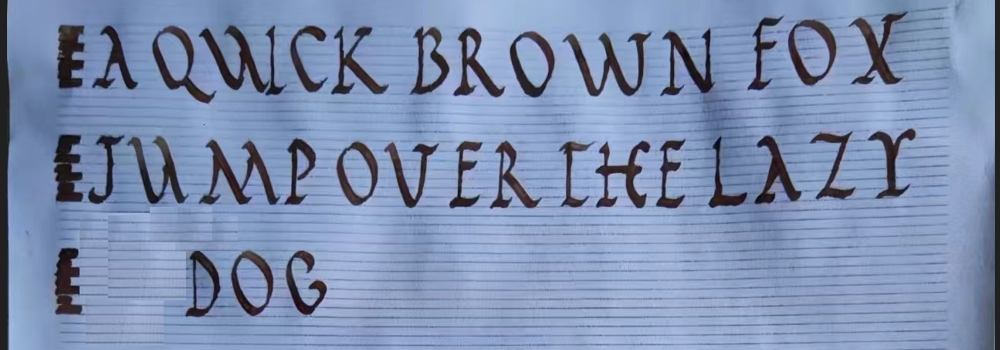 A QUICK BROWN FOX
JUMP OVER THE LAZY
DOG